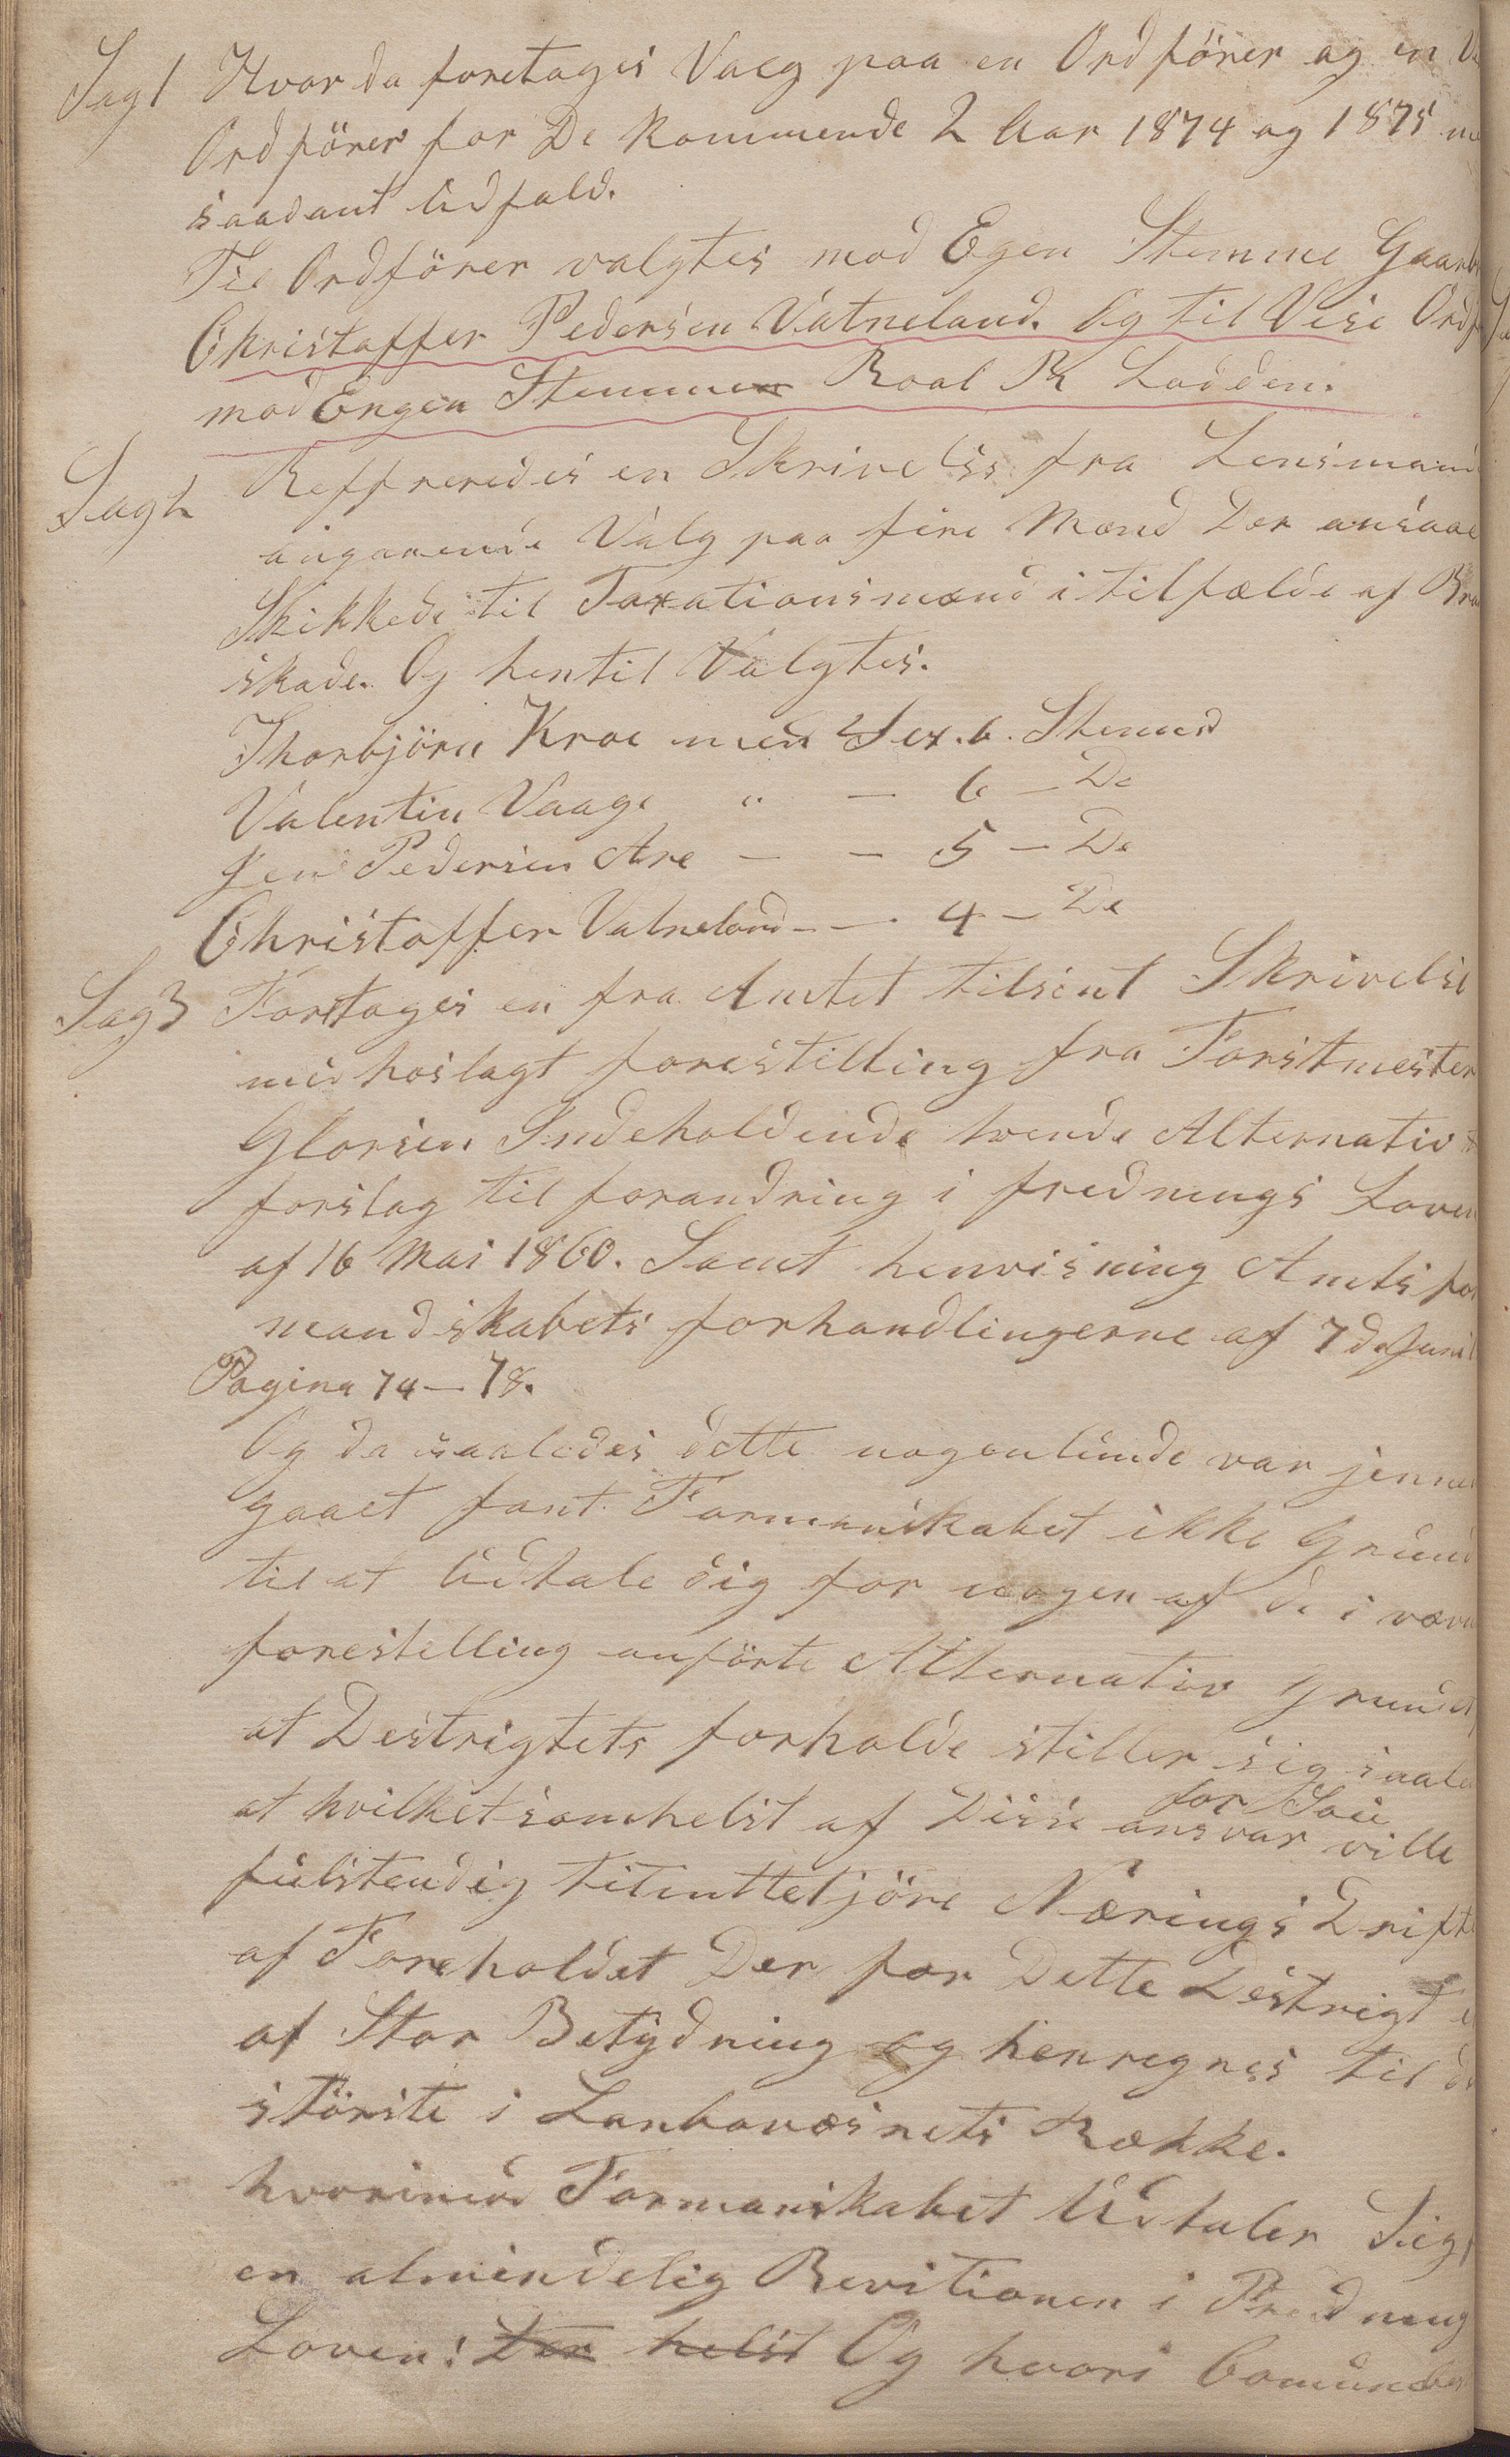 Sag 1 Hvor da foretoges Valg paa en Ordförer og en
Ordförer for De kommende 2 Aar 1874 og 1875
saadant Udfald.
Til Ordförer valgtes mod Egen Stemme
Christoffer Pedersen Vatneland. Og til Vise
mod Engen Stemmen Roal R Lodden.
Sag 2 Reffreredes en Skrivelse fra Lensmand
angaaende Valg paa fire Mænd Der ansaaes
Skikkede til Taxationsmænd i tilfælde af
skade. Og hertil Valgtes.
Thorbjörn Kroe med Sex. 6. Stemmer
Valentin Vaage " — 6 — De
Jens Pedersen Are — — 5 — De
Christoffer Vatneland — — 4 — De
Sag 3 Foretoges en fra Amtet tilsent Skrivelse
med hoslagt forestilling fra Forstmester
Glorsen Indeholdende tvende Alternativ
forslag til forandring i frednings Loven
af 16 Mai 1860. Samt henvisning Amtsfor
mandskabets forhandlingerne af 7de Juni
Pagina 74 — 78.
Og da saaledes dette nogenlunde var jennem
gaaet fant Formanskabet ikke Grund
til at Udtale sig for nogen af de i
forestelling anförte Alternativ
at Destrigtets forholde stiller sig saale
at hvilketsomhelst af Disse ansvar for Soü ville
fülstendig tilinttetjöre Nærings Drift
af Foreholdet Der for Dette Destrigt
af Stor Betydning og henregnes til
störste i Lanbovæsnets Række.
hvorimod Formanskabet Udtaler Sig
en almindelig Revitionen i Fredning
Loven: Der helst Og hvori